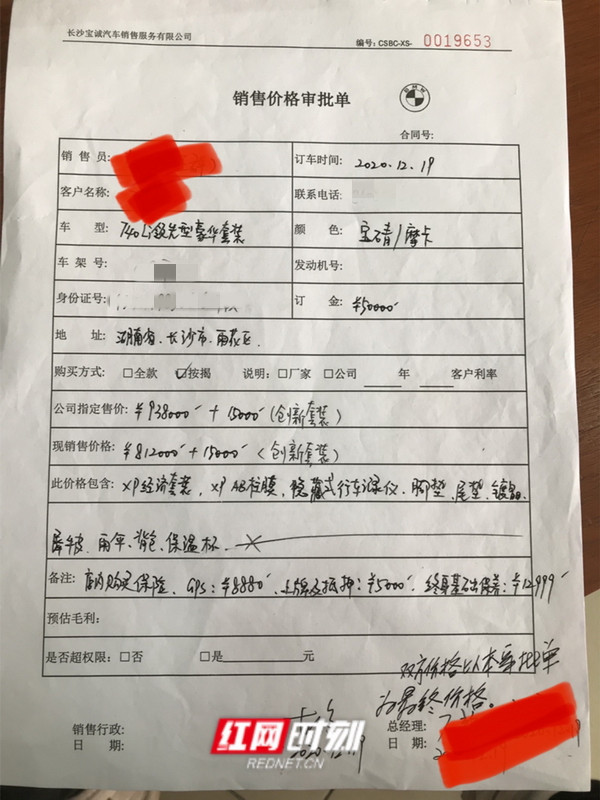 长沙宝诚汽车销售服务有限公司
编号: CSBC-XS- 0019653
销售价格审批单
合同号:
销售员: 订车时间: 2020.12.19
客户名称: 联系电话:
车 型: 740Li领先型豪华套装 颜 色: 宝石青/摩卡
车架号: 发动机号:
身份证号: 订 金: ¥50000
地 址: 湖南省、长沙市、雨花区.
购买方式: □全款 ☑按揭 说明: □厂家 □公司 ____年 ____客户利率
公司指定售价: ¥938000 + 15000 (创新套装)
现销售价格: ¥812000 + 15000 (创新套装)
此价格包含: XP经济套装, XP AB柱膜, 隐藏式行车记录仪, 脚垫, 尾垫, 镀晶,
犀牛皮, 雨伞、背包、保温杯.
备注: 店内购买保险、GPS: ¥8880 上牌及抵押: ¥5000 终身基础保养: ¥12999
预估毛利:
是否超权限: □否 □是________元
双方价格以本审批单
为最终价格。
销售行政: 总经理:
日 期: 2020.12.19 日 期:
红网时刻
REDNET.CN